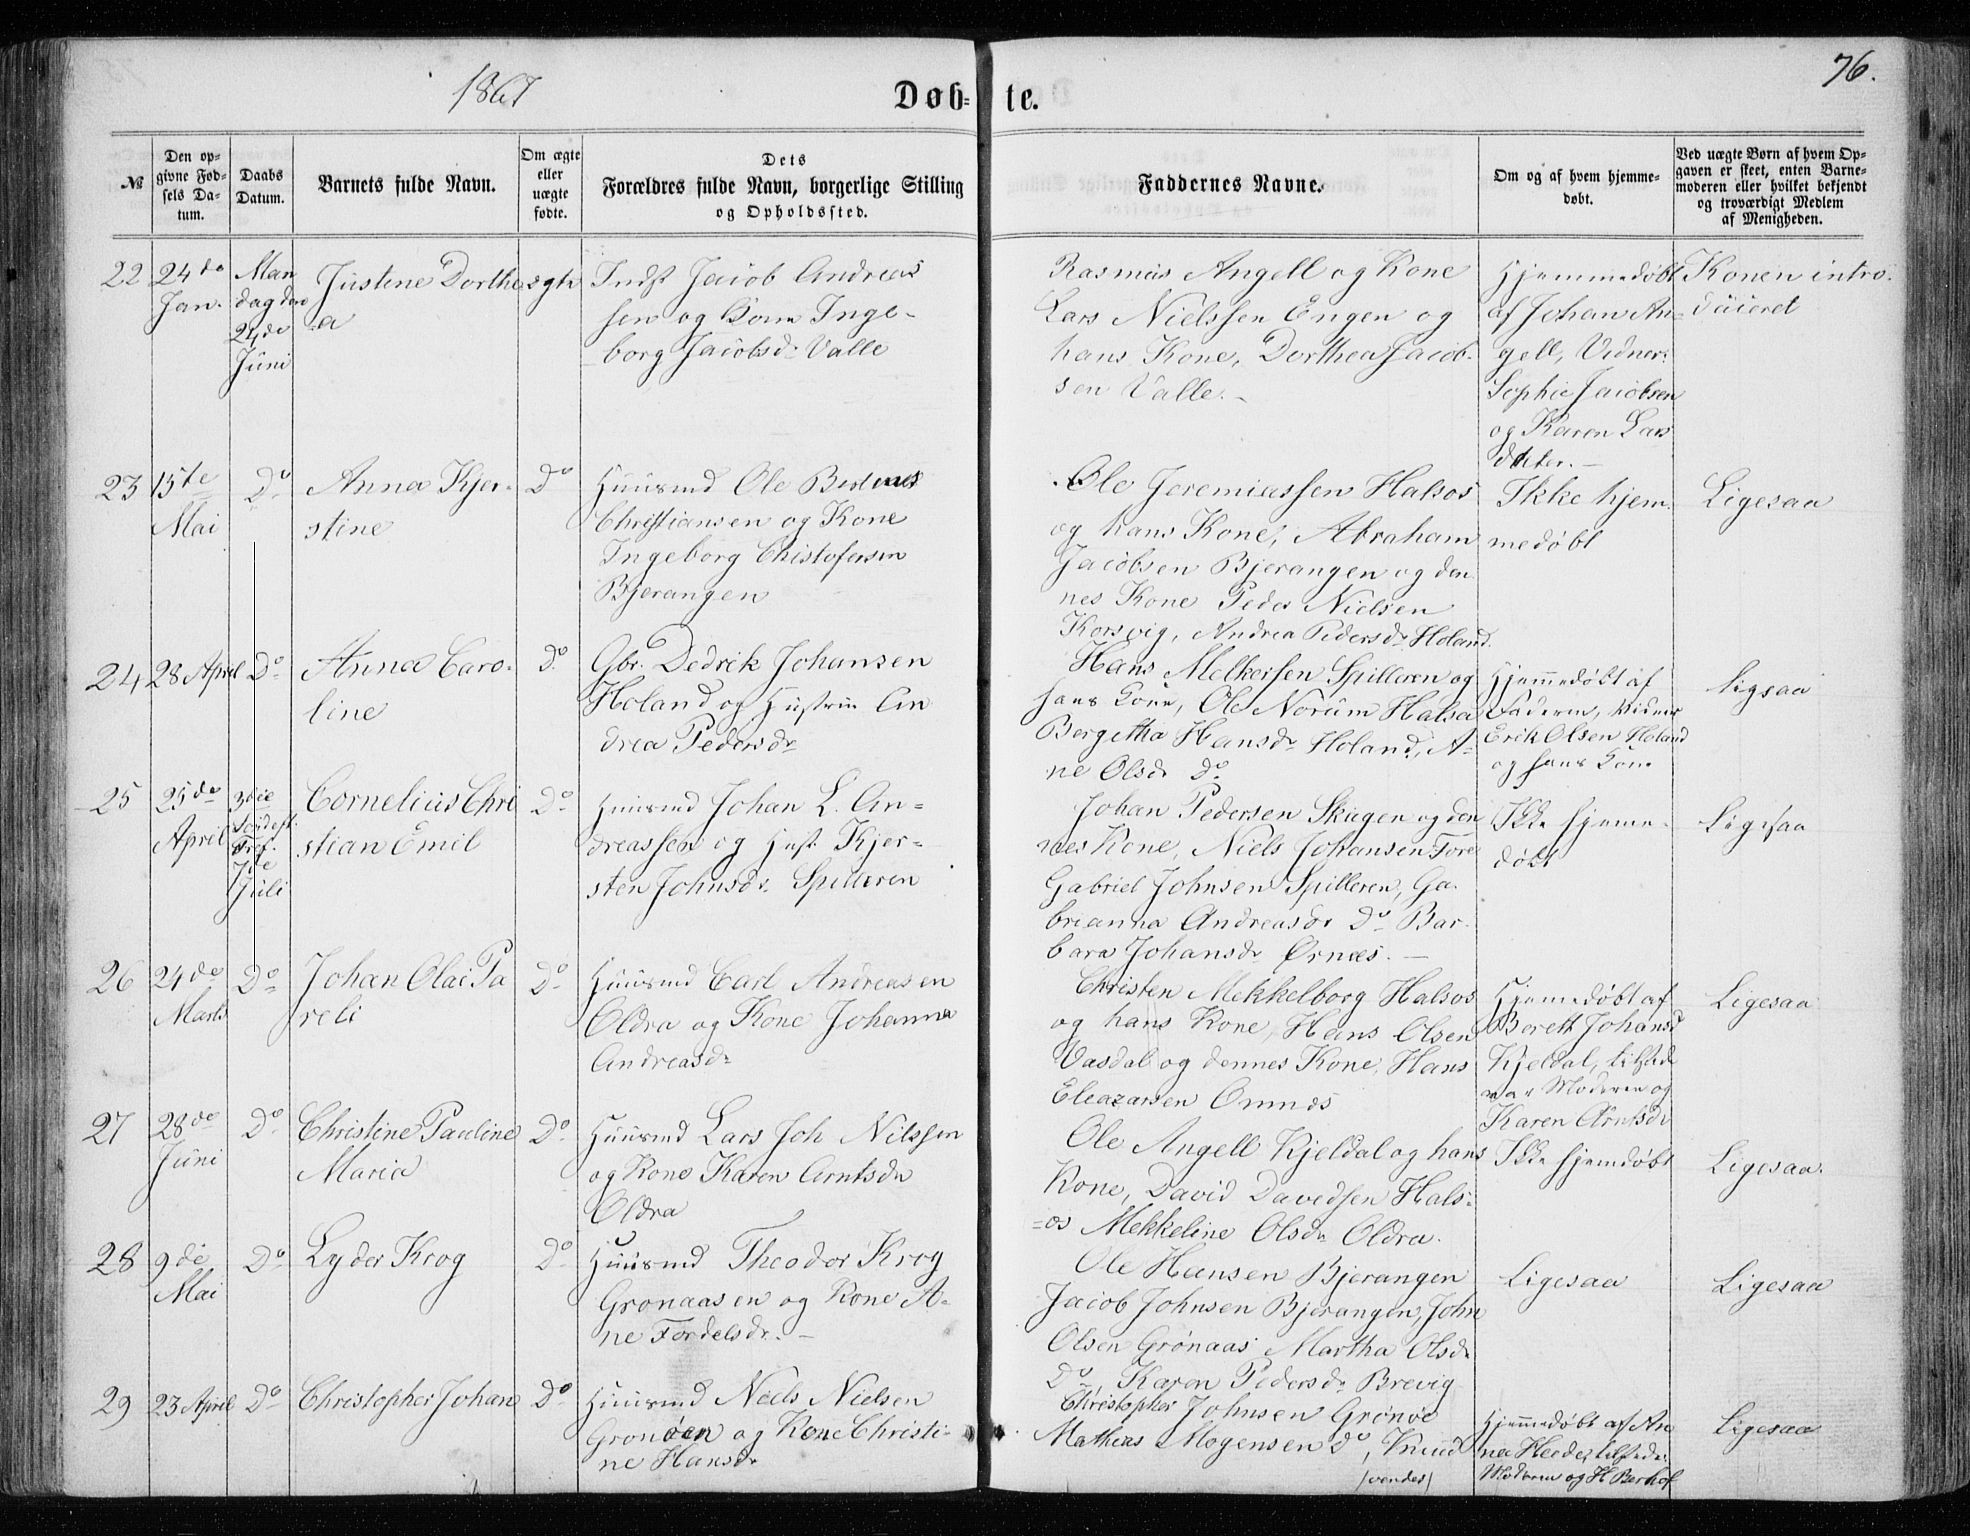 1867
76.
Døb- te.
№
Den op-
givne Fød-
sels Da-
tum.
Daabs
Datum.
Barnets fulde Navn.
Om ægte
eller
uægte
fødte.
Dets
Forældres fulde Navn, borgerlige Stilling
og Opholdssted.
Faddernes Navne.
Om og af hvem hjemme-
døbt.
Ved uægte Børn af hvem Op-
gaven er skeet, enten Barne-
moderen eller hvilket bekjendt
og troværdigt Medlem
af Menigheden.
22
24de
Jan.
Man
dag den
24de
Juni
Justine Dorthe
=a
ægte
Indst Jacob Andreas
sen og Kone Inge-
borg Jacobsd: Valle
Rasmus Angell og Kone
Lars Nielssen Engen og
hans Kone, Dorthea Jacob-
sen Valle. -
Hjemmedøbt
af Johan An-
gell, Vidner:
Sophie Jacobsen
og Karen Lars
datter. -
Konen intro-
duceret
23
15te
Mai
Do
Anna Kjer-
stine
Do
Huusmd Ole
Christiansen og Kone
Ingeborg Christofersen
Bjerangen
Ole Jeremiassen Halsos
og hans Kone, Abraham
Jacobsen Bjerangen og den
nes Kone Peder Nielsen
Korsvig, Andrea Pedersdr Holand.
Ikke hjem-
medøbt
Ligesaa
24
28 April
Do
Anna Caro-
line
Do
Gbr. Dedrik Johansen
Holand og Hustru An
drea Pedersdr
Hans Melkersen Spilleren og
hans Kone, Ole Norum Halsa
Bergetha Hansdr Holand, A-
ne Olsdr Do
Hjemmedøbt af
Faderen, Vidner
Erik Olsen Holand
og hans Kone
Ligsaa
25
25de
April
3die
Søndag e.
Tref.
7de
Juli
Cornelius Chri
stian Emil
Do
Huusmd Johan L. An-
dreassen og Hust. Kjer-
sten Johnsdr. Spilleren
Johan Pedersen Skagen og den
nes Kone, Niels Johansen Fore
Gabriel Johnsen Spilleren, Ga-
brianna Andreasdr Do Bar-
bara Johansdr Ørnæs. -
Ikke hjemme-
døbt
Ligesaa
26
24de
Marts
Do
Johan Olai Pa
reli
Do
Huusmd Carl Andreasen
Oldra og Kone Johanna
Andreasdr
Christen Mekkelborg Halsos
og hans Kone, Hans Olsen
Vasdal og dennes Kone, Hans
Eleazarsen Ornnæs
Hjemmedøbt af
Berett Johansd
Kjeldal, tilstede
var Moderen og
Karen Arntsdr
Ligesaa
27
28de
Juni
Do
Christine Pauline
Maria
Do
Huusmd Lars Joh Nilssen
og Kone Karen Arntsdr
Oldra
Ole Angell Kjeldal og hans
Kone, David Davedsen Hals-
=os Mekkeline Olsdr Oldra.
Ikke hjemdøbt
Ligesaa.
28
9de
Mai
Do
Lyder Krog
Do
Huusmd Theodor Krog
Gronaasen og Kone A-
ne Tordelsdr. -
Ole Hansen Bjerangen
Jacob Johnsen Bjerangen, John
Olsen Grønaas Martha Olsdr
Do, Karen Pedersdr Brevig
Ligesaa
Ligesaa
29
23 April
Do
Christopher Johan
Do
Huusmd Neels Nielsen
Gronøen og Kone Christi-
ne Hansdr
Christopher Johnsen Grønøe
Mathias Mogensen Do, Knud
/vendes/
Hjemmedøbt af An
na Heede, tilstede
Moderen og H Berhof
Ligesaa